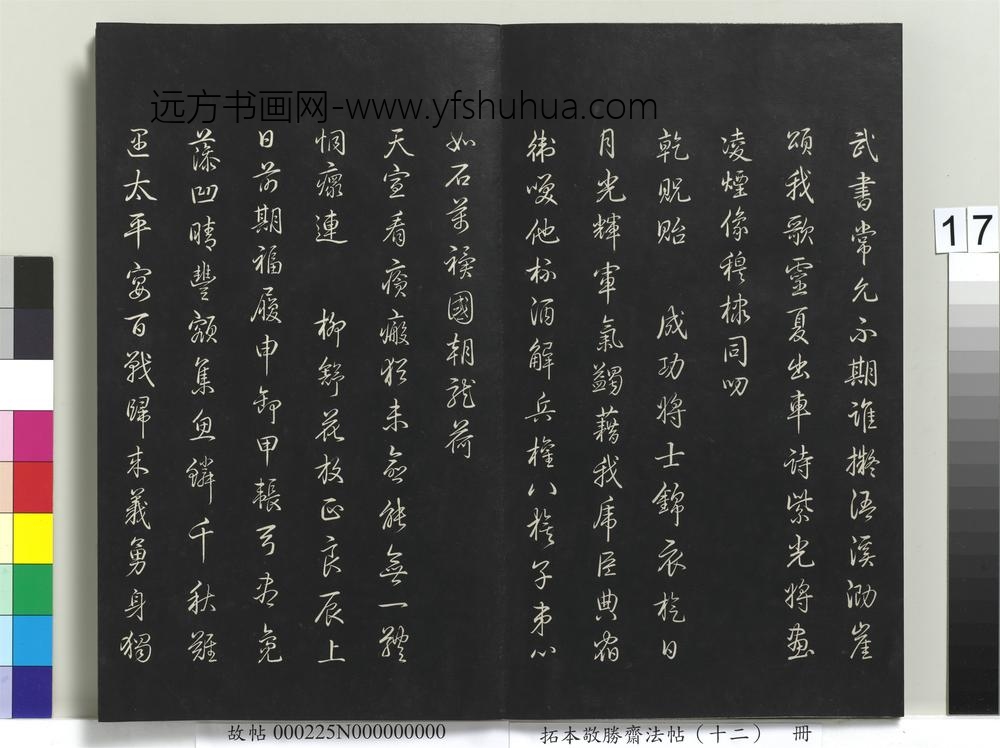 武書常允示期誰擬浯溪泐崖
頌我歌靈夏出車詩紫光將畫
凌煙像穆棣同
乾貺貽 成功將士錦衣旋日
月光輝軍氣蠲藉我虎臣典宿
衛 他杯酒解兵權八旗子弟心
如石萬禩國朝龍荷
天宣看 癜 未 能無一體
恫瘝連 柳舒花放正良辰上
日前期福履申卸甲 弓 免
藻凹晴豐 集魚鱗千秋難
遇太平宴百戰歸來義勇身獨
远方书画网-www.yfshuhua.com
17
故帖 000225N000000000
拓本敬勝齋法帖（十二） 冊